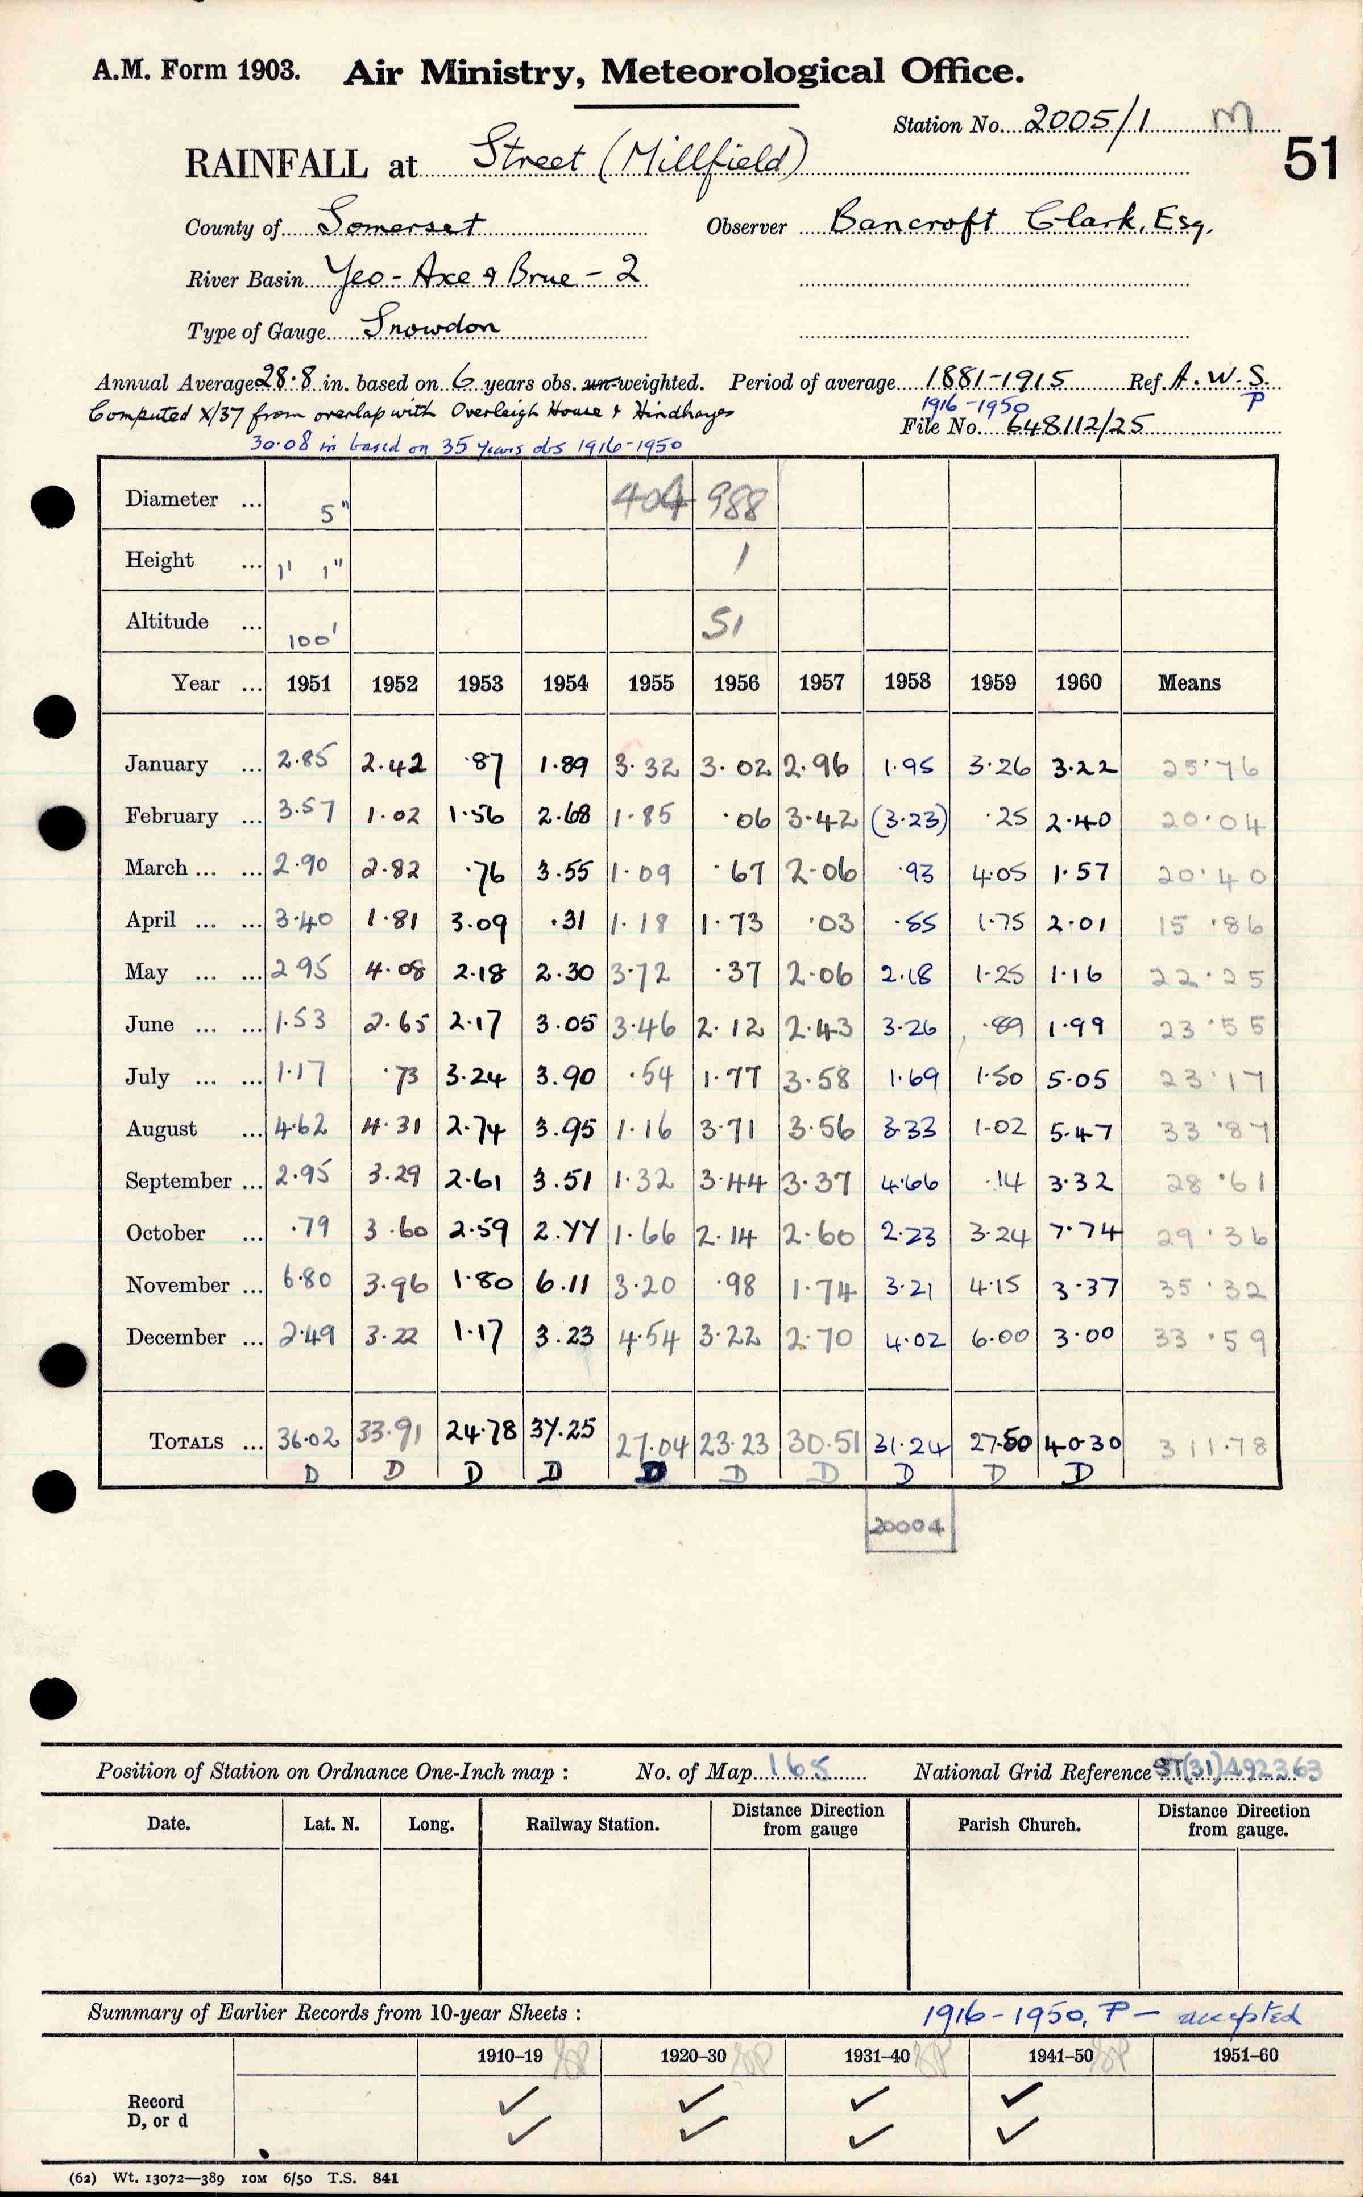 A.M. Form 1903. Air Ministry, Meteorological Office.
Station No. 2005/1 M
RAINFALL at Street (Millfield) 51
County of Somerset Observer Bancroft Clark, Esq.
River Basin Yeo - Axe & Brue - 2
Type of Gauge Snowdon
Annual Average 28.8 in. based on 6 years obs. un-weighted. Period of average 1881-1915 Ref. A.W.S.
Computed X/37 from overlap with Overleigh House & Hindhayes 1916-1950 P
File No. 648112/25
30.08 in based on 35 years obs 1916-1950
Diameter ... 5" 404 988
Height ... 1' 1" 1
Altitude ... 100' 51
Year ... 1951 1952 1953 1954 1955 1956 1957 1958 1959 1960 Means
January ... 2.85 2.42 .87 1.89 3.32 3.02 2.96 1.95 3.26 3.22 25.76
February ... 3.57 1.02 1.56 2.68 1.85 .06 3.42 (3.23) .25 2.40 20.04
March ... ... 2.90 2.82 .76 3.55 1.09 .67 2.06 .93 4.05 1.57 20.40
April ... ... 3.40 1.81 3.09 .31 1.18 1.73 .03 .55 1.75 2.01 15.86
May ... ... 2.95 4.08 2.18 2.30 3.72 .37 2.06 2.18 1.25 1.16 22.25
June ... ... 1.53 2.65 2.17 3.05 3.46 2.12 2.43 3.26 .89 1.99 23.55
July ... ... 1.17 .73 3.24 3.90 .54 1.77 3.58 1.69 1.50 5.05 23.17
August ... 4.62 4.31 2.74 3.95 1.16 3.71 3.56 3.33 1.02 5.47 33.87
September ... 2.95 3.29 2.61 3.51 1.32 3.44 3.37 4.66 .14 3.32 28.61
October ... .79 3.60 2.59 2.77 1.66 2.14 2.60 2.23 3.24 7.74 29.36
November ... 6.80 3.96 1.80 6.11 3.20 .98 1.74 3.21 4.15 3.37 35.32
December ... 2.49 3.22 1.17 3.23 4.54 3.22 2.70 4.02 6.00 3.00 33.59
TOTALS ... 36.02 33.91 24.78 37.25 27.04 23.23 30.51 31.24 27.50 40.30 311.78
D D D D D D D D D D
20004
Position of Station on Ordnance One-Inch map : No. of Map 165 National Grid Reference ST(31)492363
Date. Lat. N. Long. Railway Station. Distance Direction from gauge Parish Church. Distance Direction from gauge.
Summary of Earlier Records from 10-year Sheets : 1916-1950, P - accepted
1910–19 1920–30 1931–40 1941–50 1951–60
Record
D, or d
(62) Wt. 13072—389 10M 6/50 T.S. 841